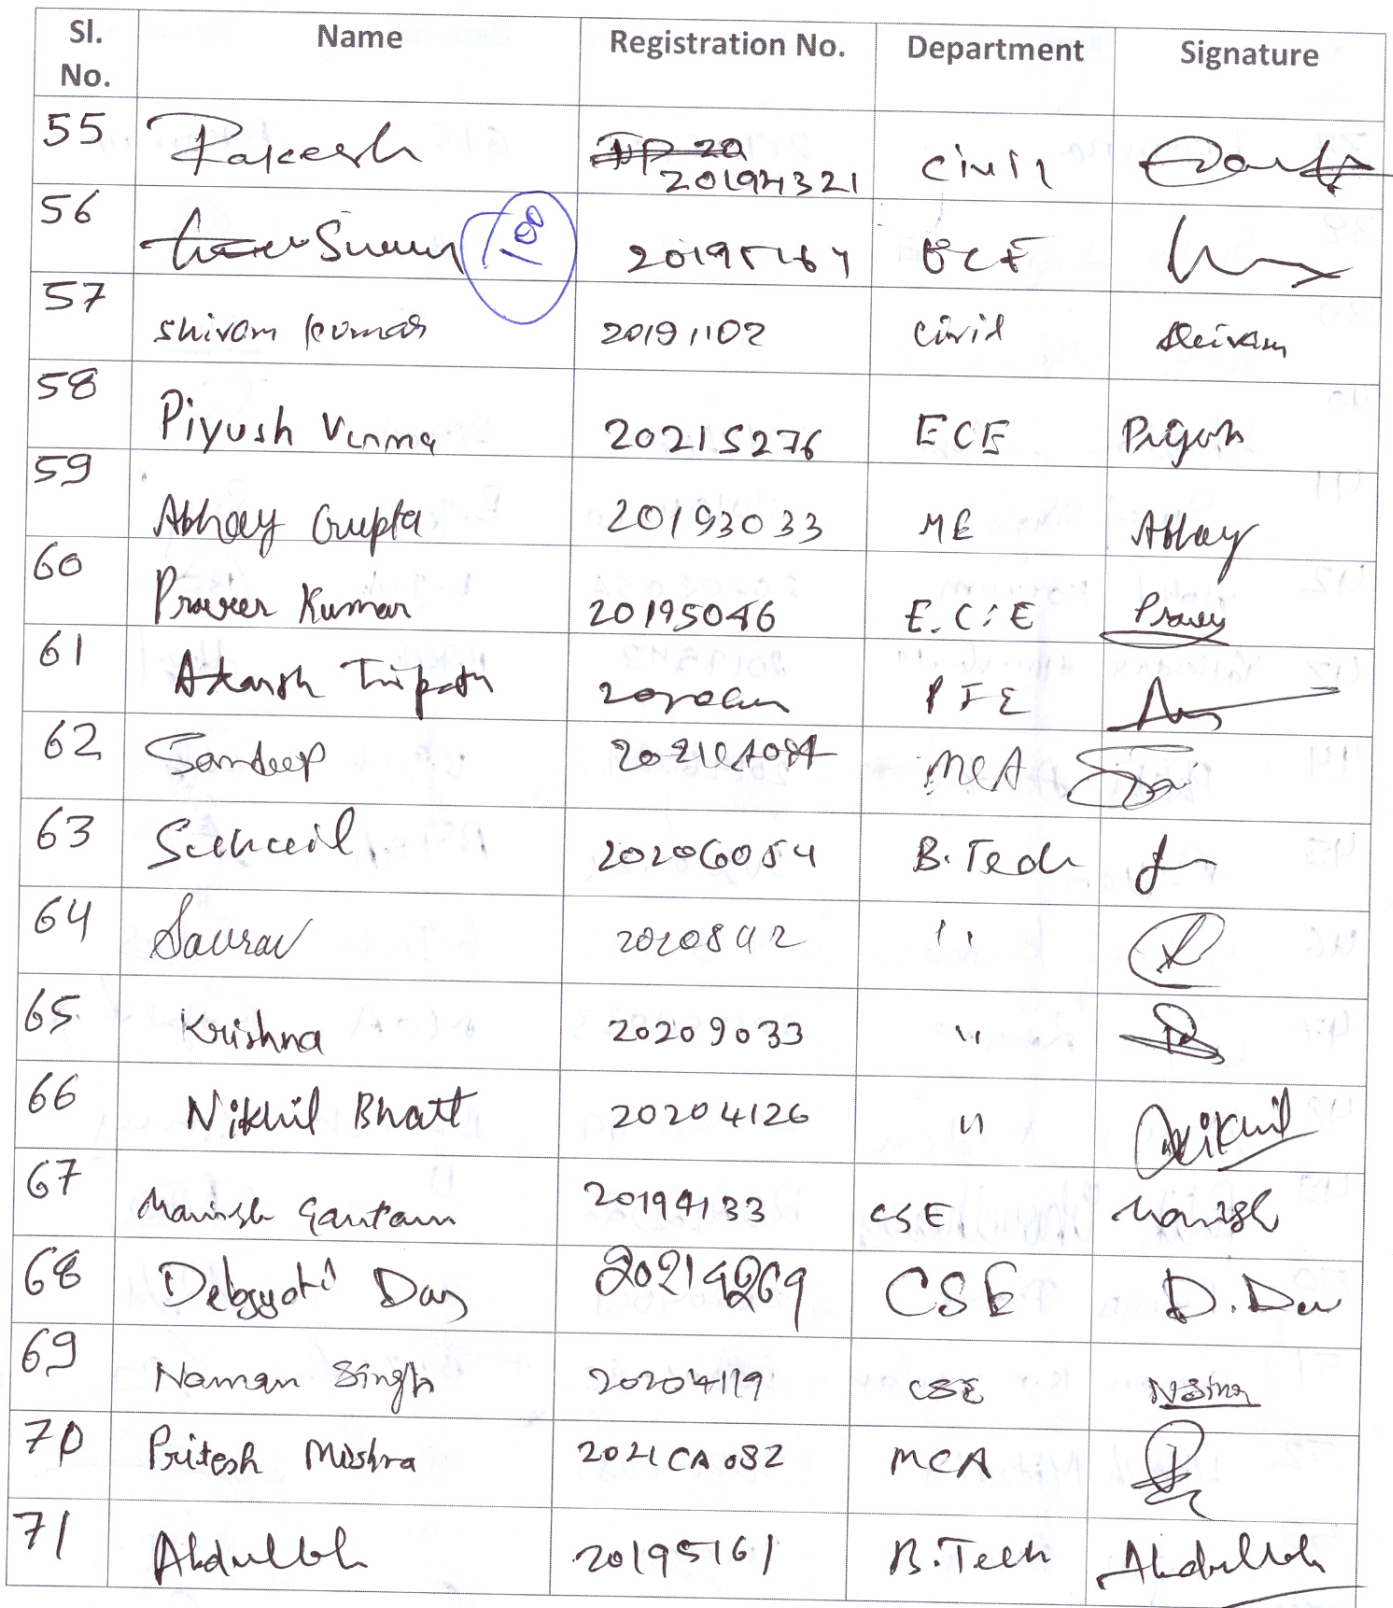 Sl. No. Name Registration No. Department Signature
55 Rakeesh 20194321 Civil
56 100 20195164 ECE
57 Shivam Kumar 20191102 Civil Shivam
58 Piyush Verma 20215276 ECE Piyush
59 Abhay Gupta 20193033 ME Abhay
60 Praveer Kumar 20195046 E.C.E
61 Akarsh Tripathi PIE
62 Sandeep 2021CA084 MCA
63 20206054 B.Tech
64 Saurav 2020842 "
65 Krishna 20209033 "
66 Nikhil Bhatt 20204126 " Nikhil
67 Manish Gautam 20194133 CSE Manish
68 Debjyoti Das 20214269 CSE D. Das
69 Naman Singh 20204119 CSE
70 Pritesh Mishra 2021CA082 MCA
71 Abdullah 20195161 B.Tech Abdullah